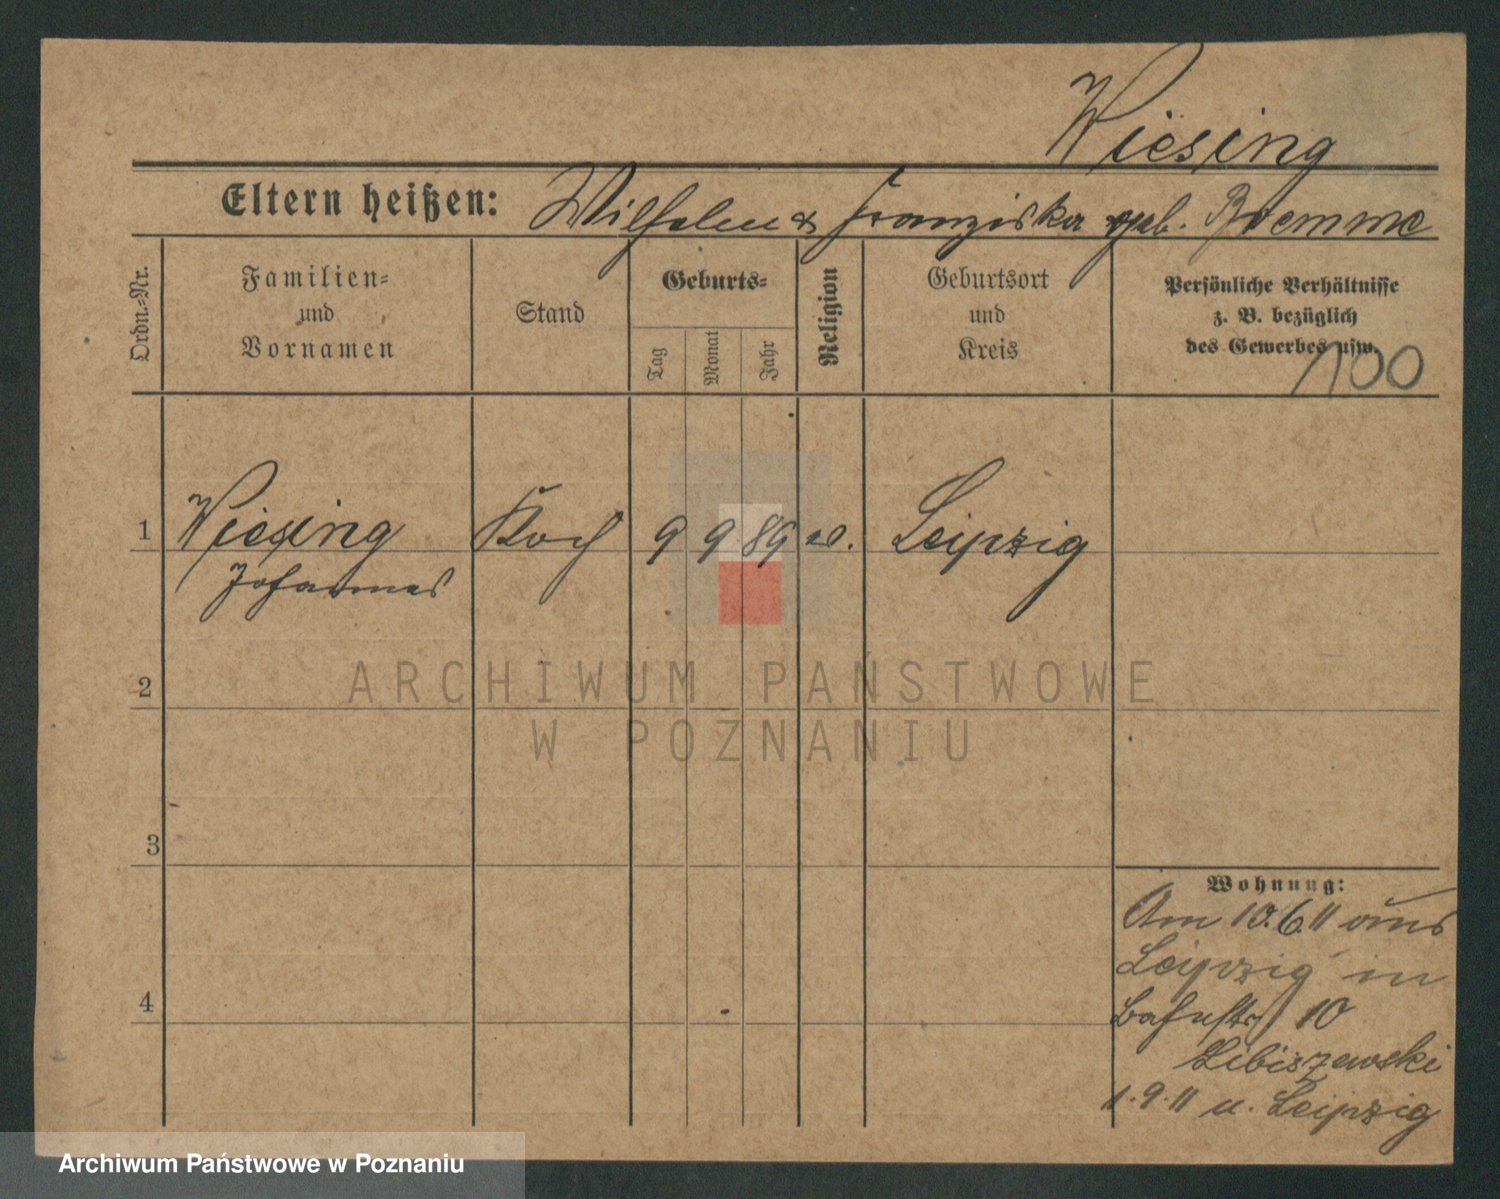 Wiesing
Eltern heißen: Wilhelm & Franziska geb. Boemme
Ordn.-Nr.
Familien-
und
Vornamen
Stand
Geburts-
Tag
Monat
Jahr
Religion
Geburtsort
und
Kreis
Persönliche Verhältnisse
z. B. bezüglich
des Gewerbes usw.
100
1 Wiesing Koch 9 9 89 Leipzig
Johannes
2
ARCHIWUM PAŃSTWOWE
W POZNANIU
3
4
Wohnung:
Am 10.6.11 aus
Leipzig in
Bahnstr 10
Libiszewski
1.9.11 n. Leipzig
Archiwum Państwowe w Poznaniu